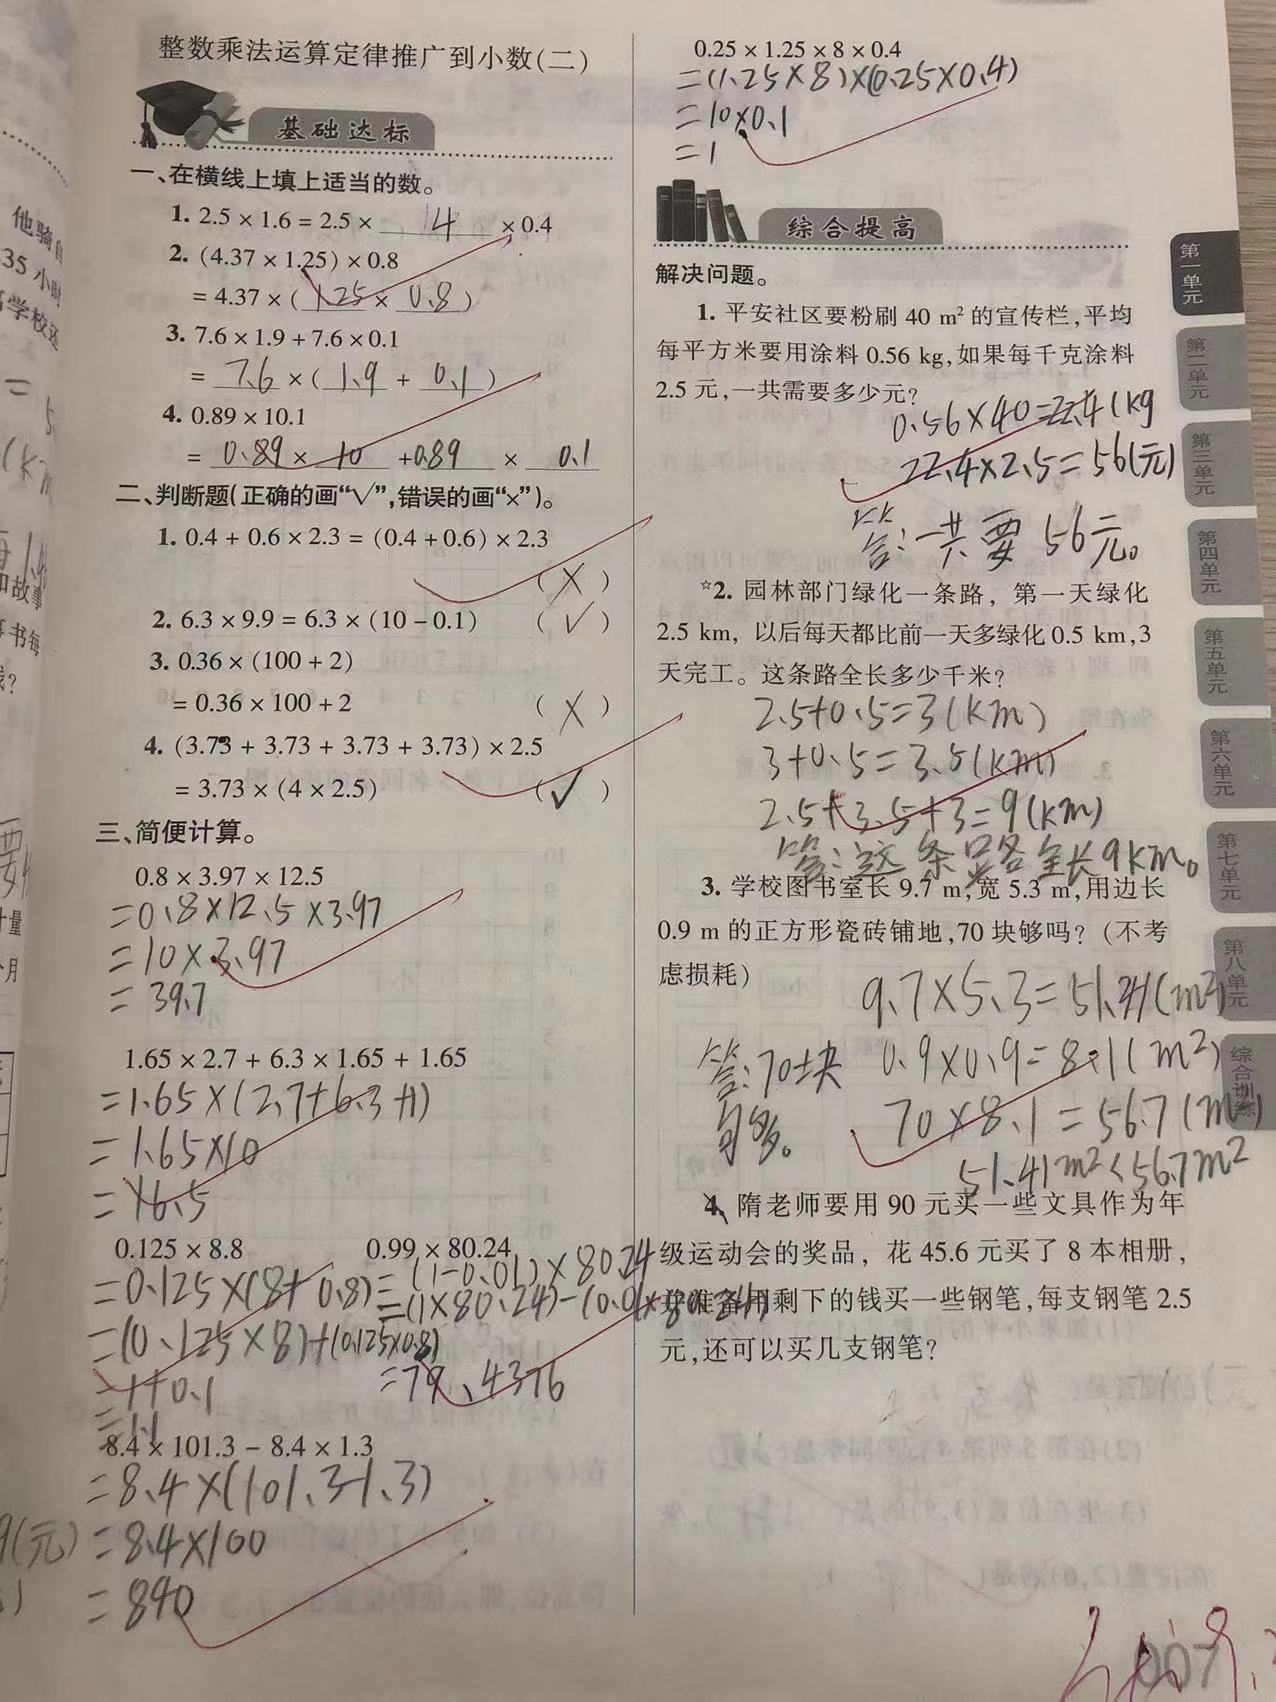 整数乘法运算定律推广到小数(二)
基础达标
一、在横线上填上适当的数。
1. 2.5 × 1.6 = 2.5 × 4 × 0.4
2. (4.37 × 1.25) × 0.8
= 4.37 × ( 1.25 × 0.8 )
3. 7.6 × 1.9 + 7.6 × 0.1
= 7.6 × ( 1.9 + 0.1 )
4. 0.89 × 10.1
= 0.89 × 10 + 0.89 × 0.1
二、判断题(正确的画“√”,错误的画“×”)。
1. 0.4 + 0.6 × 2.3 = (0.4 + 0.6) × 2.3
( × )
2. 6.3 × 9.9 = 6.3 × (10 − 0.1) ( √ )
3. 0.36 × (100 + 2)
= 0.36 × 100 + 2 ( × )
4. (3.73 + 3.73 + 3.73 + 3.73) × 2.5
= 3.73 × (4 × 2.5) ( √ )
三、简便计算。
0.8 × 3.97 × 12.5
=0.8×12.5×3.97
=10×3.97
=39.7
1.65 × 2.7 + 6.3 × 1.65 + 1.65
=1.65×(2.7+6.3+1)
=1.65×10
=16.5
0.125 × 8.8
=0.125×(8+0.8)
=(0.125×8)+(0.125×0.8)
=1+0.1
=1.1
0.99 × 80.24
=(1-0.01)×80.24
=(1×80.24)-(0.01×80.24)
=79.4376
8.4 × 101.3 − 8.4 × 1.3
=8.4×(101.3-1.3)
=8.4×100
=840
0.25 × 1.25 × 8 × 0.4
=(1.25×8)×(0.25×0.4)
=10×0.1
=1
综合提高
解决问题。
1. 平安社区要粉刷 40 m² 的宣传栏,平均
每平方米要用涂料 0.56 kg,如果每千克涂料
2.5 元,一共需要多少元?
0.56×40=22.4(kg
22.4×2.5=56(元)
答:一共要56元。
☆2. 园林部门绿化一条路, 第一天绿化
2.5 km, 以后每天都比前一天多绿化 0.5 km,3
天完工。这条路全长多少千米?
2.5+0.5=3(km)
3+0.5=3.5(km)
2.5+3.5+3=9(km)
答:这条路全长9km。
3. 学校图书室长 9.7 m,宽 5.3 m,用边长
0.9 m 的正方形瓷砖铺地,70 块够吗? (不考
虑损耗)
9.7×5.3=51.41(m²)
0.9×0.9=8.1(m²)
70×8.1=56.7(m
51.41m²<56.7m²
答:70块
够。
4. 隋老师要用 90 元买一些文具作为年
级运动会的奖品, 花 45.6 元买了 8 本相册,
并准备用剩下的钱买一些钢笔,每支钢笔 2.5
元,还可以买几支钢笔?
第一单元
第二单元
第三单元
第四单元
第五单元
第六单元
第七单元
第八单元
综合训练
007
他骑自
35 小时